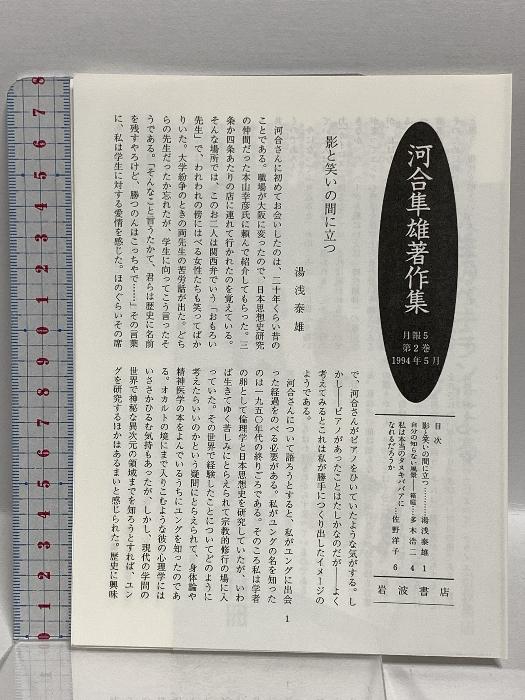 河合隼雄著作集
月報5
第2巻
1994年5月
目次
影と笑いの間に立つ…………湯浅泰雄 1
自分の知らない風景――箱庭…多木浩二 4
私は本当のタヌキババアに
なれるだろうか…………佐野洋子 6
岩波書店
影と笑いの間に立つ
湯浅泰雄
河合さんに初めてお会いしたのは、二十年くらい昔の
ことである。職場が大阪に変ったので、日本思想史研究
の仲間だった本山幸彦氏に頼んで紹介してもらった。三
条か四条あたりの店に連れて行かれたのを覚えている。
そんな場所では、このお二人は関西弁でいう「おもろい
先生」で、われわれの傍にはべる女性たちも笑ってばか
りいた。大学紛争のときの両先生の苦労話が出た。どち
らの先生だったか忘れたが、学生に向ってこう言ったそ
うである。「そんなこと言うたかて、君らは歴史に名前
を残すやろけど、勝つのんはこっちやで……」その言葉
に、私は学生に対する愛情を感じた。ほのぐらいその席
で、河合さんがピアノをひいていたような気がする。し
かし――ピアノがあったことはたしかなのだが――よく
考えてみるとこれは私が勝手につくり出したイメージの
ようである。
河合さんについて語ろうとすると、私がユングに出会
った経過をのべる必要がある。私がユングの名を知った
のは一九五〇年代の終りごろである。そのころ私は学者
の卵として倫理学と日本思想史を研究していたが、いわ
ば生きてゆく苦しみにとらえられて宗教的修行の場に入
っていた。その世界で経験したことについてどのように
考えたらいいのかという疑問にとらえられて、身体論や
精神医学の本をよんでいるうちにユングを知ったのであ
る。オカルトの境にまで入りこむような彼の心理学には
いささかひるむ気持もあったが、しかし、現代の学問の
世界で神秘な異次元の領域までを知ろうとすれば、ユン
グを研究するほかはあるまいと感じられた。歴史に興味
1
0 1 2 3 4 5 6 7 8